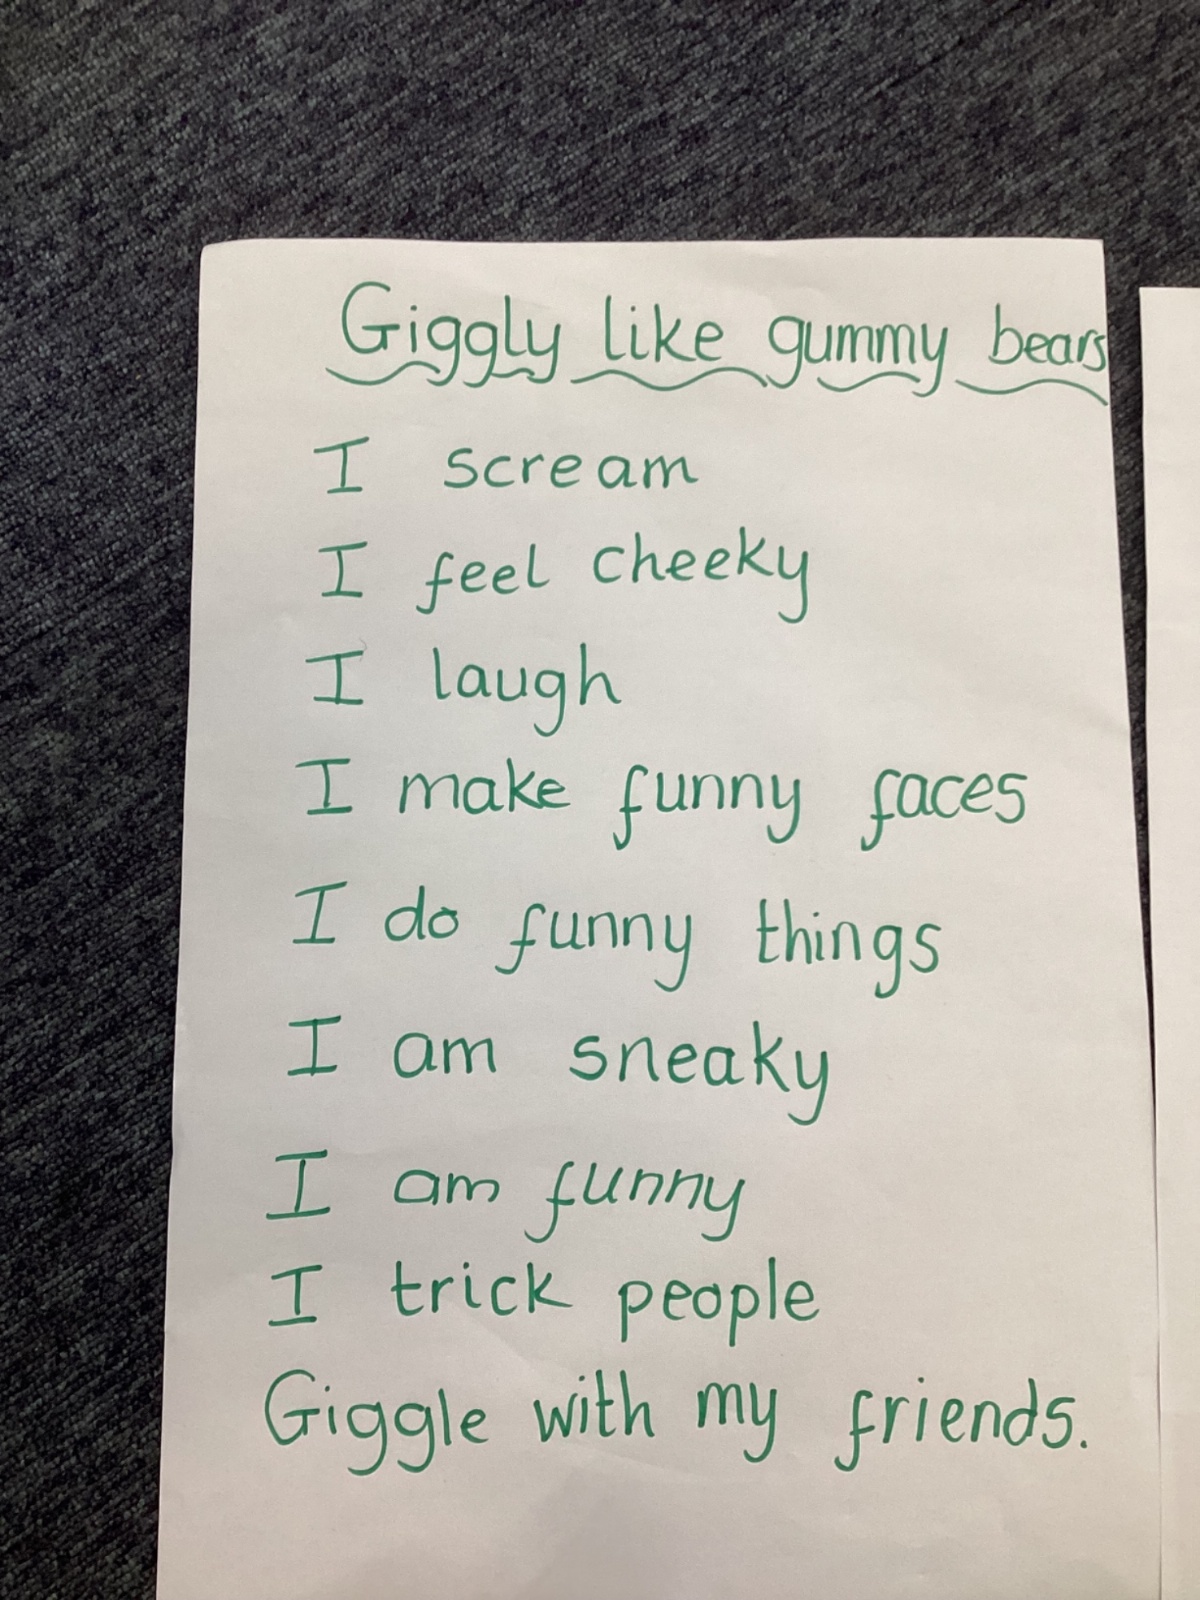 Giggly like gummy bears
I scream
I feel cheeky
I laugh
I make funny faces
I do funny things
I am sneaky
I am funny
I trick people
Giggle with my friends.